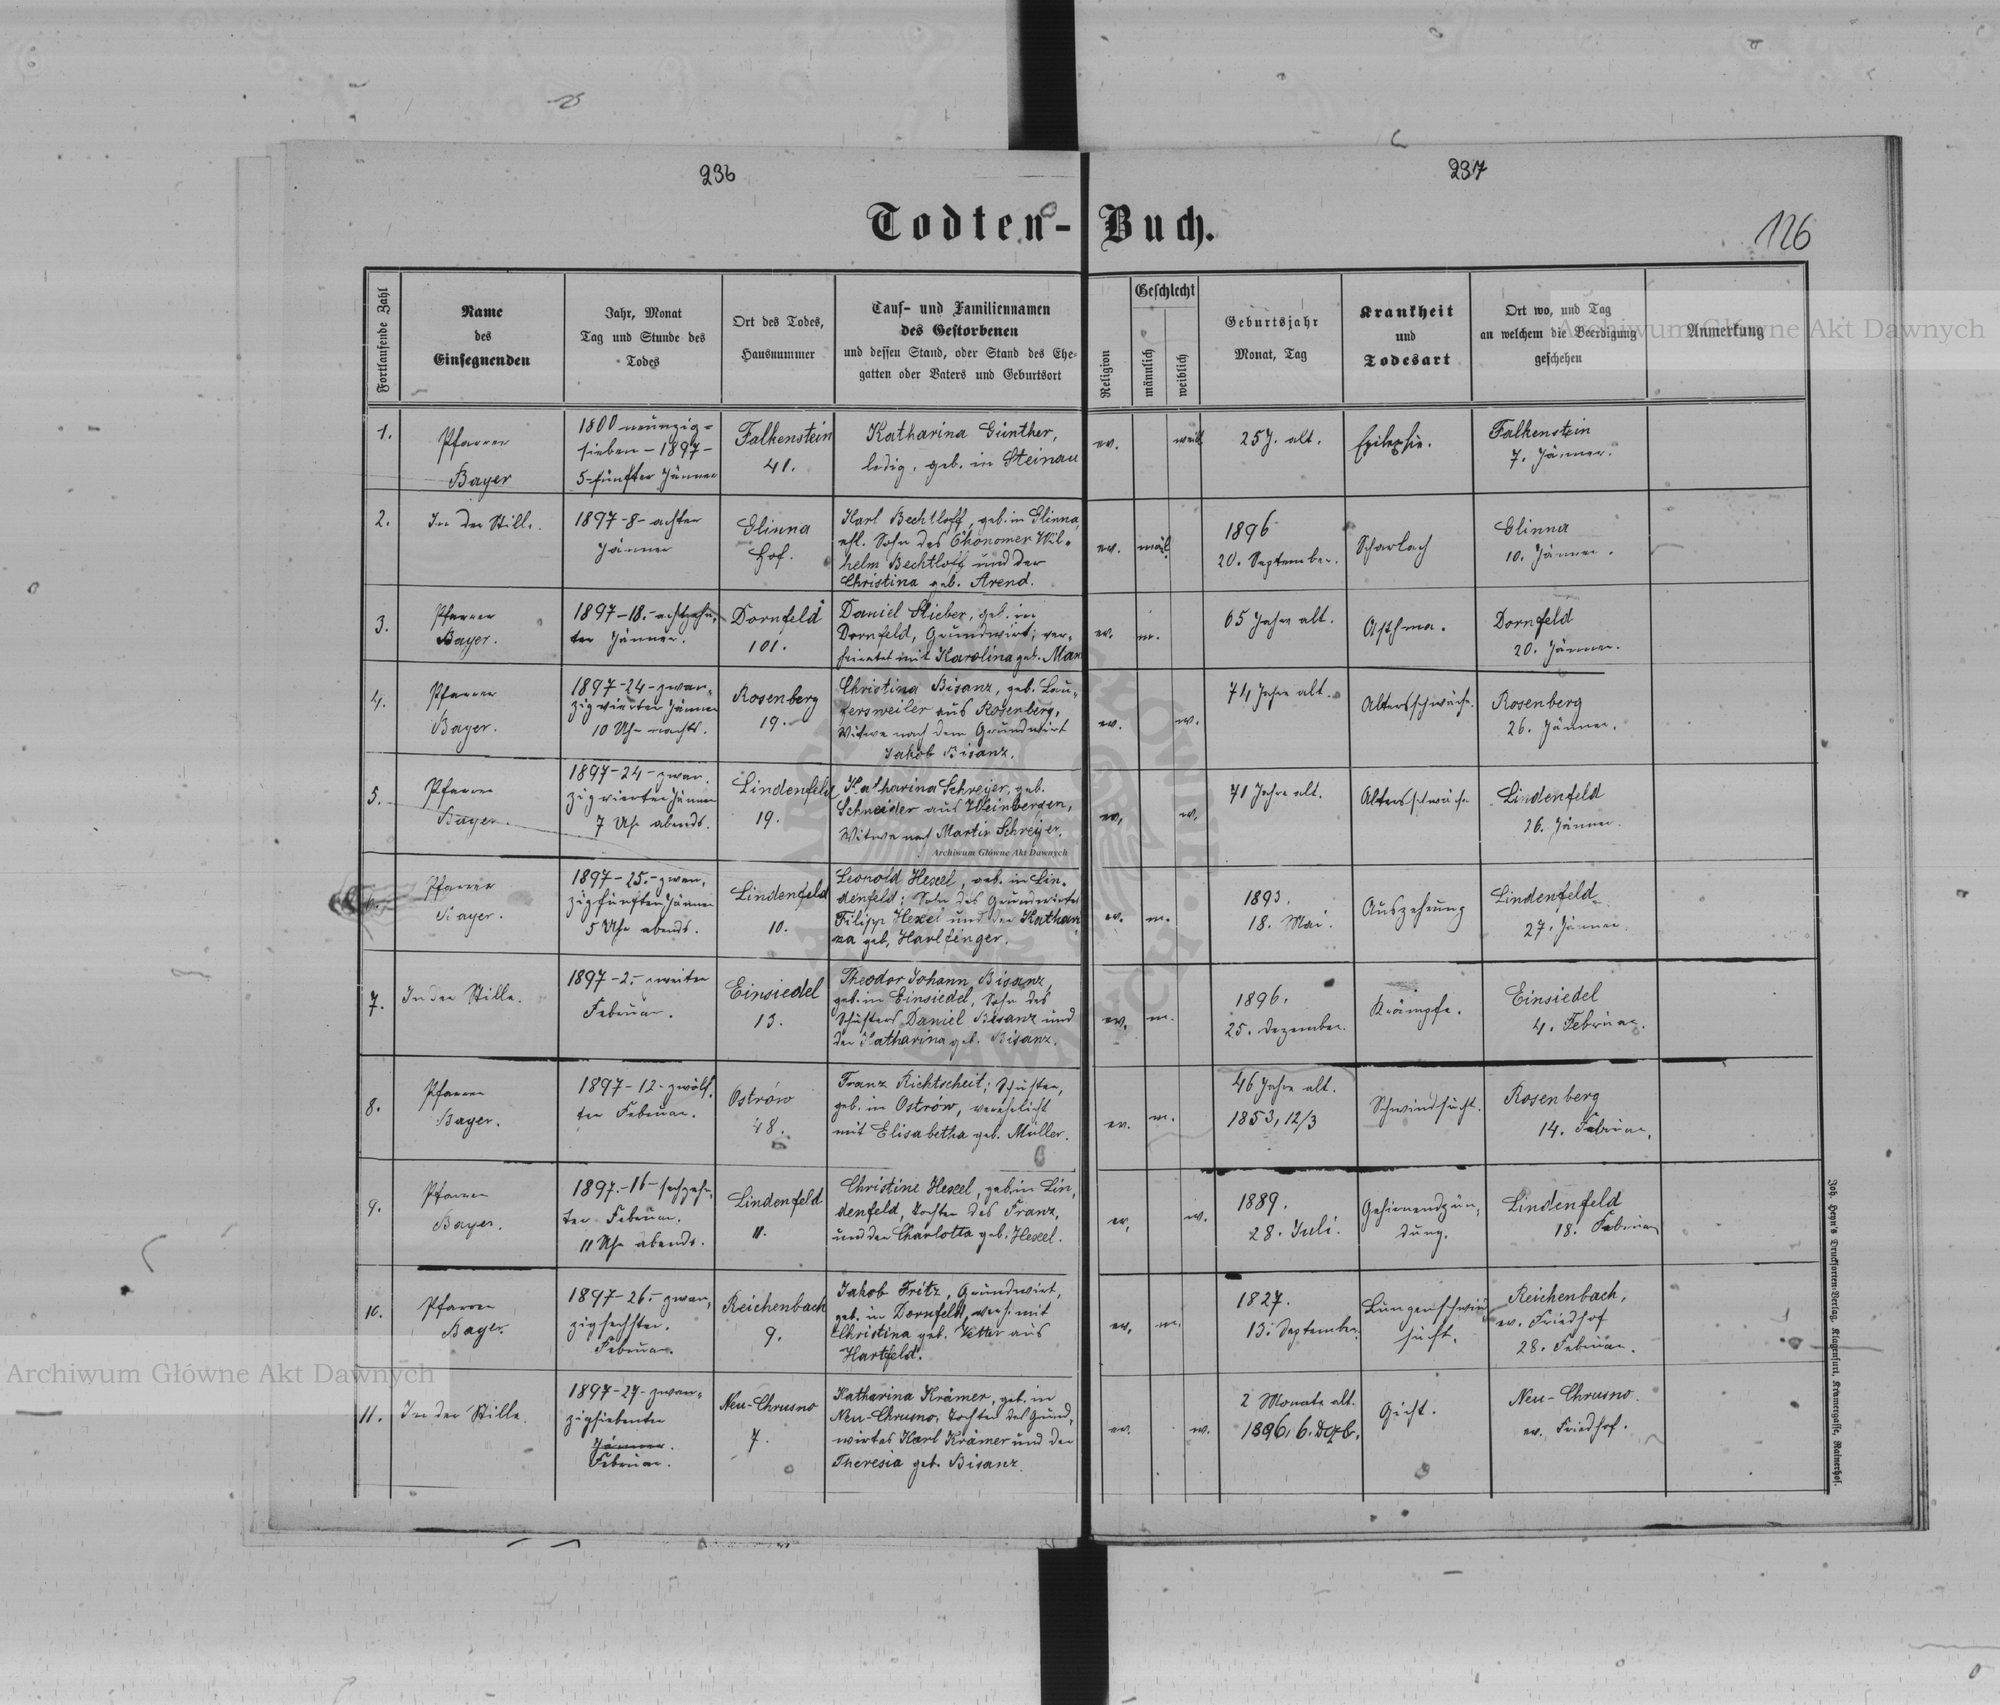 236
237
Todten-Buch.
126
Fortlaufende Zahl
Name
des
Einsegnenden
Jahr, Monat
Tag und Stunde des
Todes
Ort des Todes,
Hausnummer
Tauf- und Familiennamen
des Gestorbenen
und dessen Stand, oder Stand des Ehe-
gatten oder Vaters und Geburtsort
Religion
Geschlecht
männlich
weiblich
Geburtsjahr
Monat, Tag
Krankheit
und
Todesart
Ort wo, und Tag
an welchem die Beerdigung
geschehen
Anmerkung
1.
Pfarrer
Bayer
1800 neunzig-
sieben - 1897 -
5 - fünfter Jänner
Falkenstein
41.
Katharina Günther,
ledig, geb. in Steinau
ev.
weibl
25 J. alt.
Epilepsie.
Falkenstein
7. Jänner.
2.
In der Stille.
1897 - 8 - achter
Jänner
Glinna
Hof.
Karl Bechtloff, geb. in Glinna,
ehl. Sohn des Ökonomen Wil-
helm Bechtloff und der
Christina geb. Arend.
ev.
mäl.
1896
20. September.
Scharlach
Glinna
10. Jänner.
3.
Pfarrer
Bayer.
1897 - 18. - achtzehn-
ter Jänner.
Dornfeld
101.
Daniel Stieber, geb. in
Dornfeld, Grundwirt; ver-
heiratet mit Karolina geb. Man
ev.
m.
65 Jahre alt.
Asthma.
Dornfeld
20. Jänner.
4.
Pfarrer
Bayer.
1897 - 24 - zwan-
zigvierter Jänner
10 Uhr nachts.
Rosenberg
19.
Christina Bisanz, geb. Lau-
fersweiler aus Rosenberg,
Witwe nach dem Grundwirt
Jakob Bisanz.
ev.
w.
74 Jahre alt.
Altersschwäche.
Rosenberg
26. Jänner.
5.
Pfarrer
Bayer.
1897 - 24 - zwan-
zigvierter Jänner
7 Uhr abends.
Lindenfeld
19.
Katharina Schreyer, geb.
Schneider aus Weinbergen,
Witwe nach Martin Schreyer.
ev.
w.
71 Jahre alt.
Altersschwäche
Lindenfeld
26. Jänner.
6.
Pfarrer
Bayer.
1897 - 25. - zwan-
zigfünfter Jänner
5 Uhr abends.
Lindenfeld
10.
Leopold Hexel, geb. in Lin-
denfeld; Sohn des Grundwirtes
Filipp Hexel und der Kathari
na geb. Harlfinger.
ev.
m.
1893.
18. Mai.
Auszehrung
Lindenfeld
27. Jänner.
7.
In der Stille.
1897 - 2. - zweiter
Februar.
Einsiedel
13.
Theodor Johann Bisanz,
geb. in Einsiedel, Sohn des
Schusters Daniel Bisanz und
der Katharina geb. Bisanz.
ev.
m.
1896.
25. Dezember.
Krämpfe.
Einsiedel
4. Februar.
8.
Pfarrer
Bayer.
1897 - 12 - zwölf-
ter Februar.
Ostrów
48.
Franz Richtscheit; Schuster,
geb. in Ostrów, verehelicht
mit Elisabetha geb. Müller.
ev.
m.
46 Jahre alt.
1853, 12/3
Schwindsucht.
Rosenberg
14. Februar.
9.
Pfarrer
Bayer.
1897. - 16 - sechzehn-
ter Februar.
11 Uhr abends.
Lindenfeld
11.
Christine Hexel, geb. in Lin-
denfeld, Tochter des Franz,
und der Charlotta geb. Hexel.
ev.
w.
1889.
28. Juli.
Gehirnendzün-
dung.
Lindenfeld
18. Februar
10.
Pfarrer
Bayer.
1897 - 26. - zwan-
zigsechster.
Februar.
Reichenbach
9.
Jakob Fritz, Grundwirt,
geb. in Dornfeld, verh. mit
Christina geb. Vetter aus
Hartfeld.
ev.
m.
1827.
13. September.
Lungenschwind
sucht.
Reichenbach,
ev. Friedhof
28. Februar.
11.
In der Stille.
1897 - 27 - zwan-
zigsiebenter
Jänner.
Februar.
Neu-Chrusno
7.
Katharina Krämer, geb. in
Neu-Chrusno, Tochter des Grund-
wirtes Karl Krämer und der
Theresia geb. Bisanz.
ev.
w.
2 Monate alt.
1896. 6. Dezb.
Gicht.
Neu-Chrusno.
ev. Friedhof.
Joh. Heyn's Drucksorten-Verlag, Klagenfurt, Kramergasse, Rainerhof.
Archiwum Główne Akt Dawnych
Archiwum Główne Akt Dawnych
Archiwum Główne Akt Dawnych